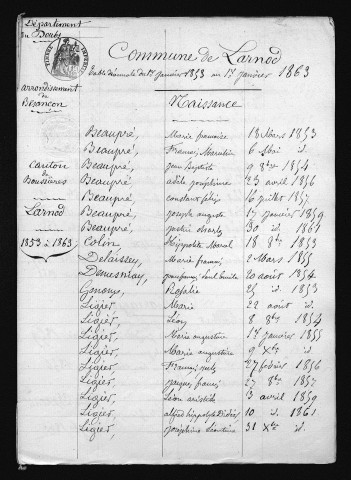 Département
du Doubs
Commune de Larnod
Table décennale du 1er janvier 1853 au 1er janvier 1863
arrondissement
de
Besançon
Naissance
canton
de
Boussières
Larnod
1853 à 1863
Beaupré, Marie françoise 18 Mars 1853
Beaupré, 6 id.
Beaupré, jean Baptiste 9 8bre 1854
Beaupré, adèle joséphine 23 avril 1856
Beaupré, constant félix 16 juillet 1857
Beaupré, joseph auguste 17 janvier 1859
Beaupré, 30 id. 1861
Colin, Hippolyte 18 8bre 1853
Delaissey, Marie 2 Mars 1855
20 août 1854
Rosalie 25 id. 1853
Ligier, Marie 22 août id.
Ligier, Léon 8 8bre 1854
Ligier, Marie augustine 1er janvier 1855
Ligier, Marie augustine 9 Xbre id.
Ligier, 27 février 1856
Ligier, jacques 27 8bre 1857
Ligier, Léon aristide 13 avril 1859
Ligier, alfred hippolyte 10 id. 1861
Ligier, joséphine Léontine 31 Xbre id.